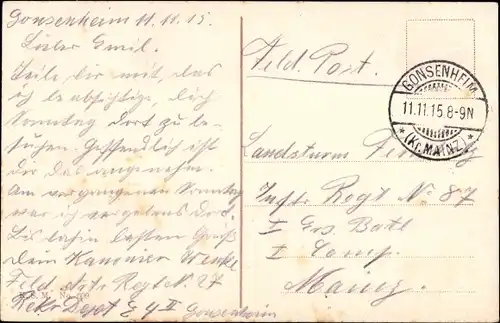 Gonsenheim 11.11.15.
Lieber Emil.
Teile dir mit, das
ich beabsichtige, dich
Sonntag dort zu be-
suchen. Hoffendlich ist
dir das angenehm.
Am vergangenen Sonntag
war ich vergebens dort.
Bis dahin besten Gruß
dein Kammer
Feld. Artr Regt N. 27
Rekr Depot II Gonsenheim
Feld. Post.
GONSENHEIM
11.11.15.8-9N
* (Kr. MAINZ) *
Landsturm
Inftr Regt No 87
I Ers Batl
I Comp.
Mainz.